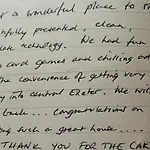 r a wonderful place to s
hfully presented, clean,
ate technology. We had fun
card games and chilling out
he convenience of getting very
y into central Exeter. We wil
back... Congratulations on
ing such a great house....
THANK YOU FOR THE CAK